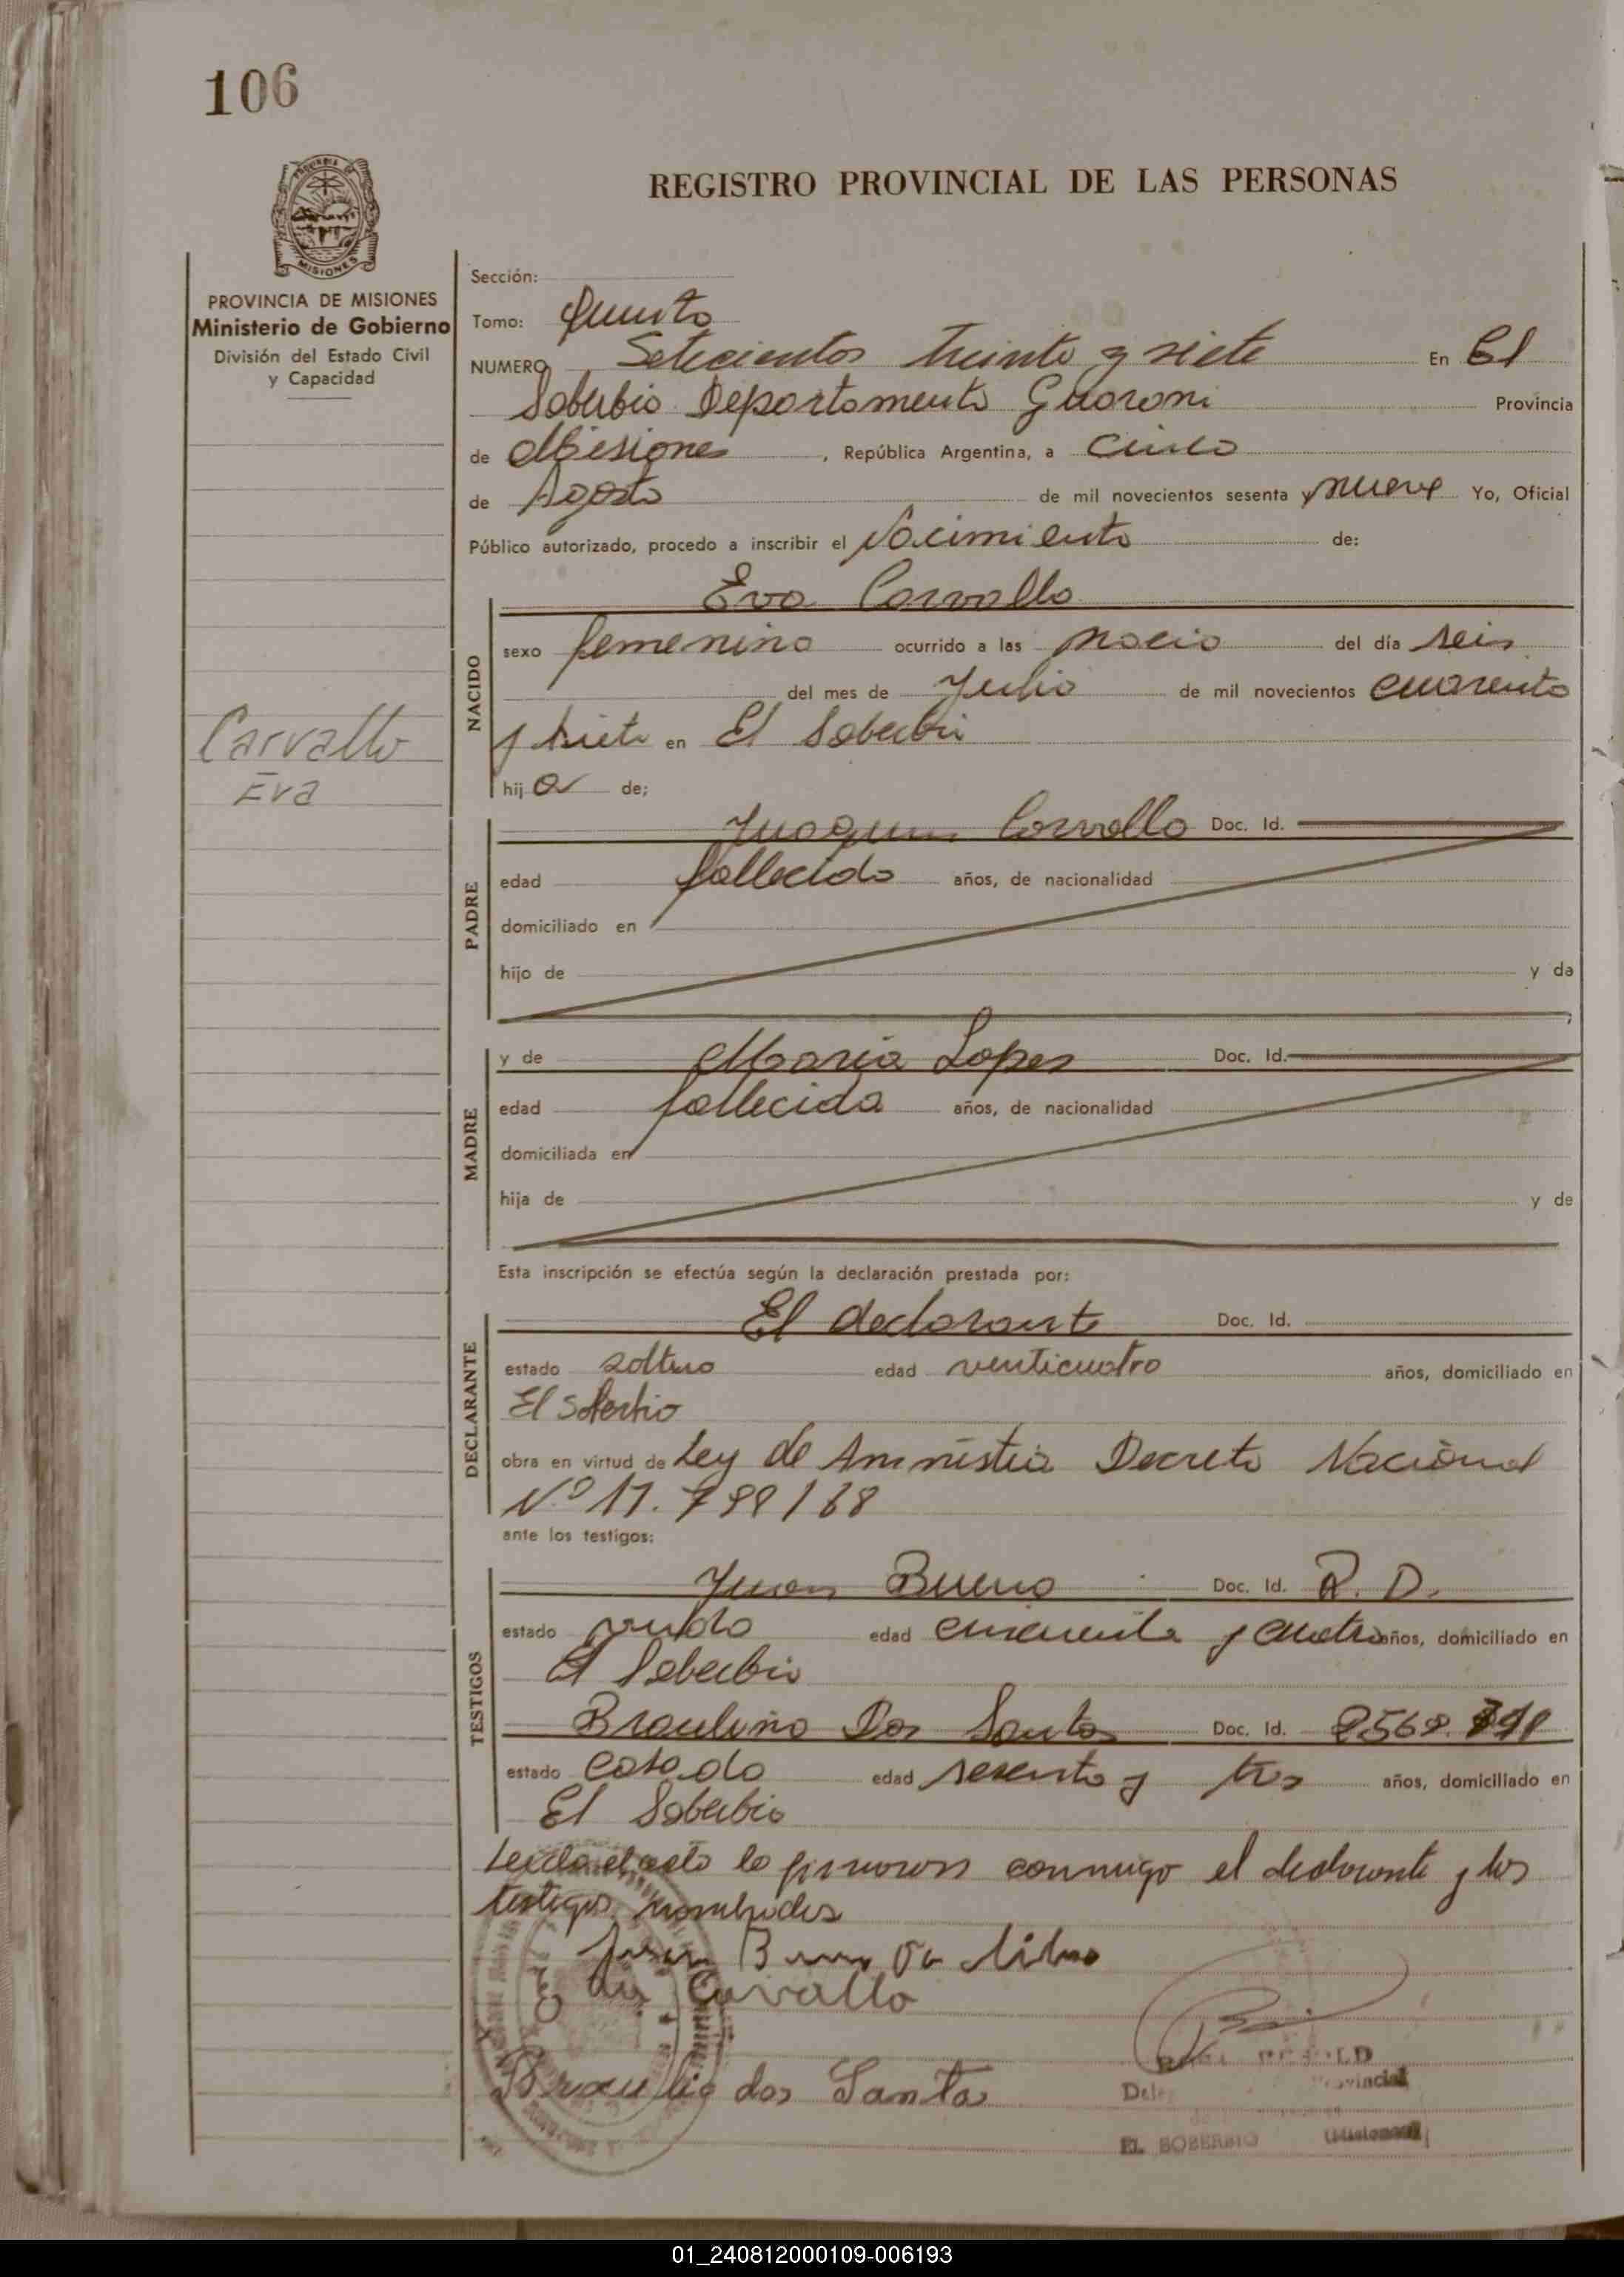 106
REGISTRO PROVINCIAL DE LAS PERSONAS
MISIONES
PROVINCIA DE MISIONES
Ministerio de Gobierno
División del Estado Civil
y Capacidad
Sección:
Tomo: Quinto
NUMERO Setecientos treinta y siete En El
Soberbio Departamento Guarani Provincia
de Misiones, República Argentina, a Cinco
de Agosto de mil novecientos sesenta y nueve Yo, Oficial
Público autorizado, procedo a inscribir el Nacimiento de:
Eva Carvallo
NACIDO
sexo femenino ocurrido a las del día seis
del mes de Julio de mil novecientos cuarenta
y siete en El Soberbio
hij a de;
Carvallo
Eva
PADRE
Juaquin Carvallo Doc. Id.
edad fallecido años, de nacionalidad
domiciliado en
hijo de y da
MADRE
y de Maria Lopes Doc. Id.
edad fallecida años, de nacionalidad
domiciliada en
hija de y de
Esta inscripción se efectúa según la declaración prestada por:
DECLARANTE
El declarante Doc. Id.
estado soltero edad venticuatro años, domiciliado en
El Soberbio
obra en virtud de Ley de Amnistia Decreto Nacional
Nº 17.
ante los testigos:
TESTIGOS
Juan Bueno Doc. Id. R. D.
estado viudo edad cincuenta y cuatro años, domiciliado en
El Soberbio
Braulino Dos Santos Doc. Id.
estado casado edad sesenta y tres años, domiciliado en
El Soberbio
Leida el acta la firmaron conmigo el declarante y los
testigos nombrados
Juan
Carvallo
Braulio dos Santos
EL SOBERBIO (Misiones)
01_240812000109-006193